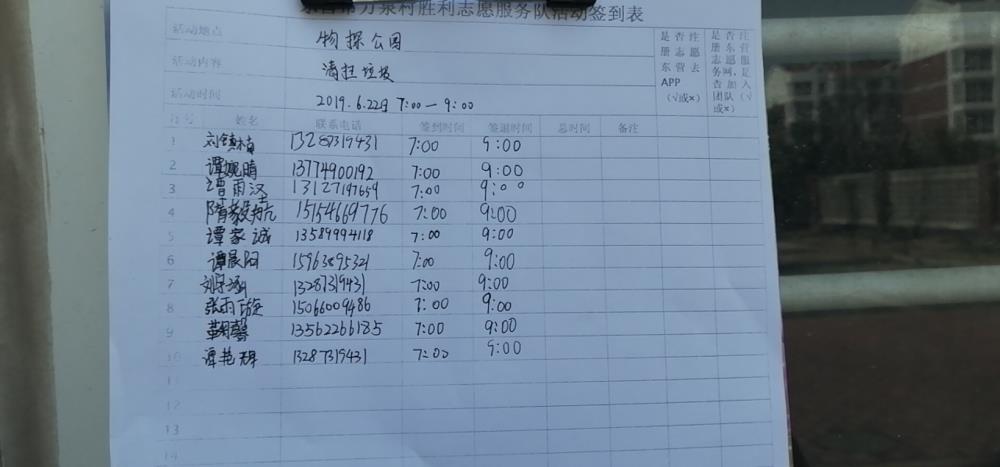 万泉村胜利志愿服务队活动签到表
活动地点 物探公园
活动内容 清扫垃圾
活动时间 2019.6.22日 7:00—9:00
是否注册志愿东营去APP（√或×）
是否注册东营志愿服务网，是否加入团队（√或×）
序号 姓名 联系电话 签到时间 签退时间 总时间 备注
1 13287319431 7:00 9:00
2 谭婉晴 13774900192 7:00 9:00
3 曹雨汉 13127197659 7:00 9:00
4 隋毅航 15154669776 7:00 9:00
5 谭家诚 13589994118 7:00 9:00
6 谭晨阳 15963895321 7:00 9:00
7 刘 13287319431 7:00 9:00
8 张雨璇 15066009486 7:00 9:00
9 馨 13562266185 7:00 9:00
10 谭艳辉 13287319431 7:00 9:00
11
12
13
14